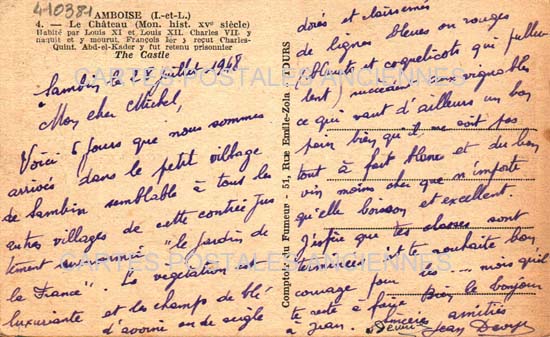 4-10381
AMBOISE (I.-et-L.)
4. — Le Château (Mon. hist. XVe siècle)
Habité par Louis XI et Louis XII. Charles VII y
naquit et y mourut. François Ier y reçut Charles-
Quint. Abd-el-Kader y fut retenu prisonnier
The Castle
Sambin 27 juillet 1948
Mon cher Michel,
Voici 6 jours que nous sommes
arrivés dans le petit village
de Sambin semblable à tous les
autres villages de cette contrée jus
tement surnommée "le jardin de
la France". La végétation est
luxuriante et les champs de blé
d'avoine ou de seigle
dorés et clairsemés
de lignes bleues ou rouges
(bleuets et coquelicots qui pullu
lent) succèdent aux vignobles
ce qui vaut d'ailleurs un bon
pain bien qu'il ne soit pas
tout à fait blanc et du bon
vin moins cher que n'importe
qu'elle boisson et excellent.
J'espère que tes classes sont
terminées et te souhaite bon
courage pour les mois qu'il
te reste à faire. Bien le bonjour
à Jean. Sincères amitiés
Jean
Comptoir du Fumeur - 51, Rue Emile-Zola - TOURS
CARTES POSTALES ANCIENNES
CARTES POSTALES ANCIENNES